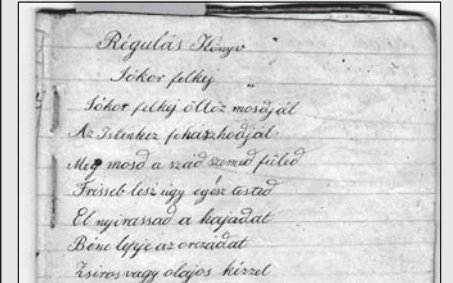 Régulás Könyv
Jókor felkej
Jókor felkej öltöz mosdjál
Az Istenhez fohászkodjál
Meg mosd a szád szemed füled
Frisseb lesz úgy egész tested
El nyirassad a hajadat
Béne lepje az orczádat
Zsiros vagy olajos kézzel